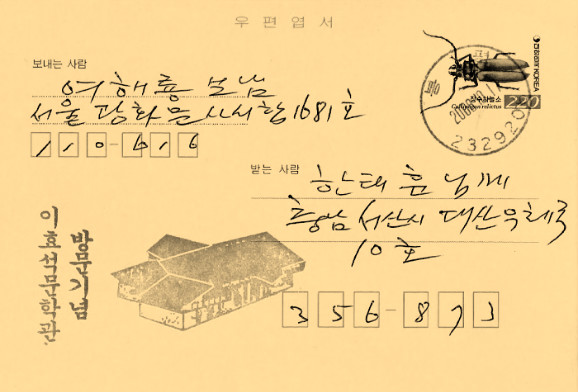 우편엽서
보내는 사람
여해룡 보냄
서울 광화문 사서함 1681호
110-616
대한민국 KOREA
장수하늘소
220
232920
받는 사람
한태훈 님께
충남 서산시 대산우체국
10호
356-873
방문기념
이효석문학관